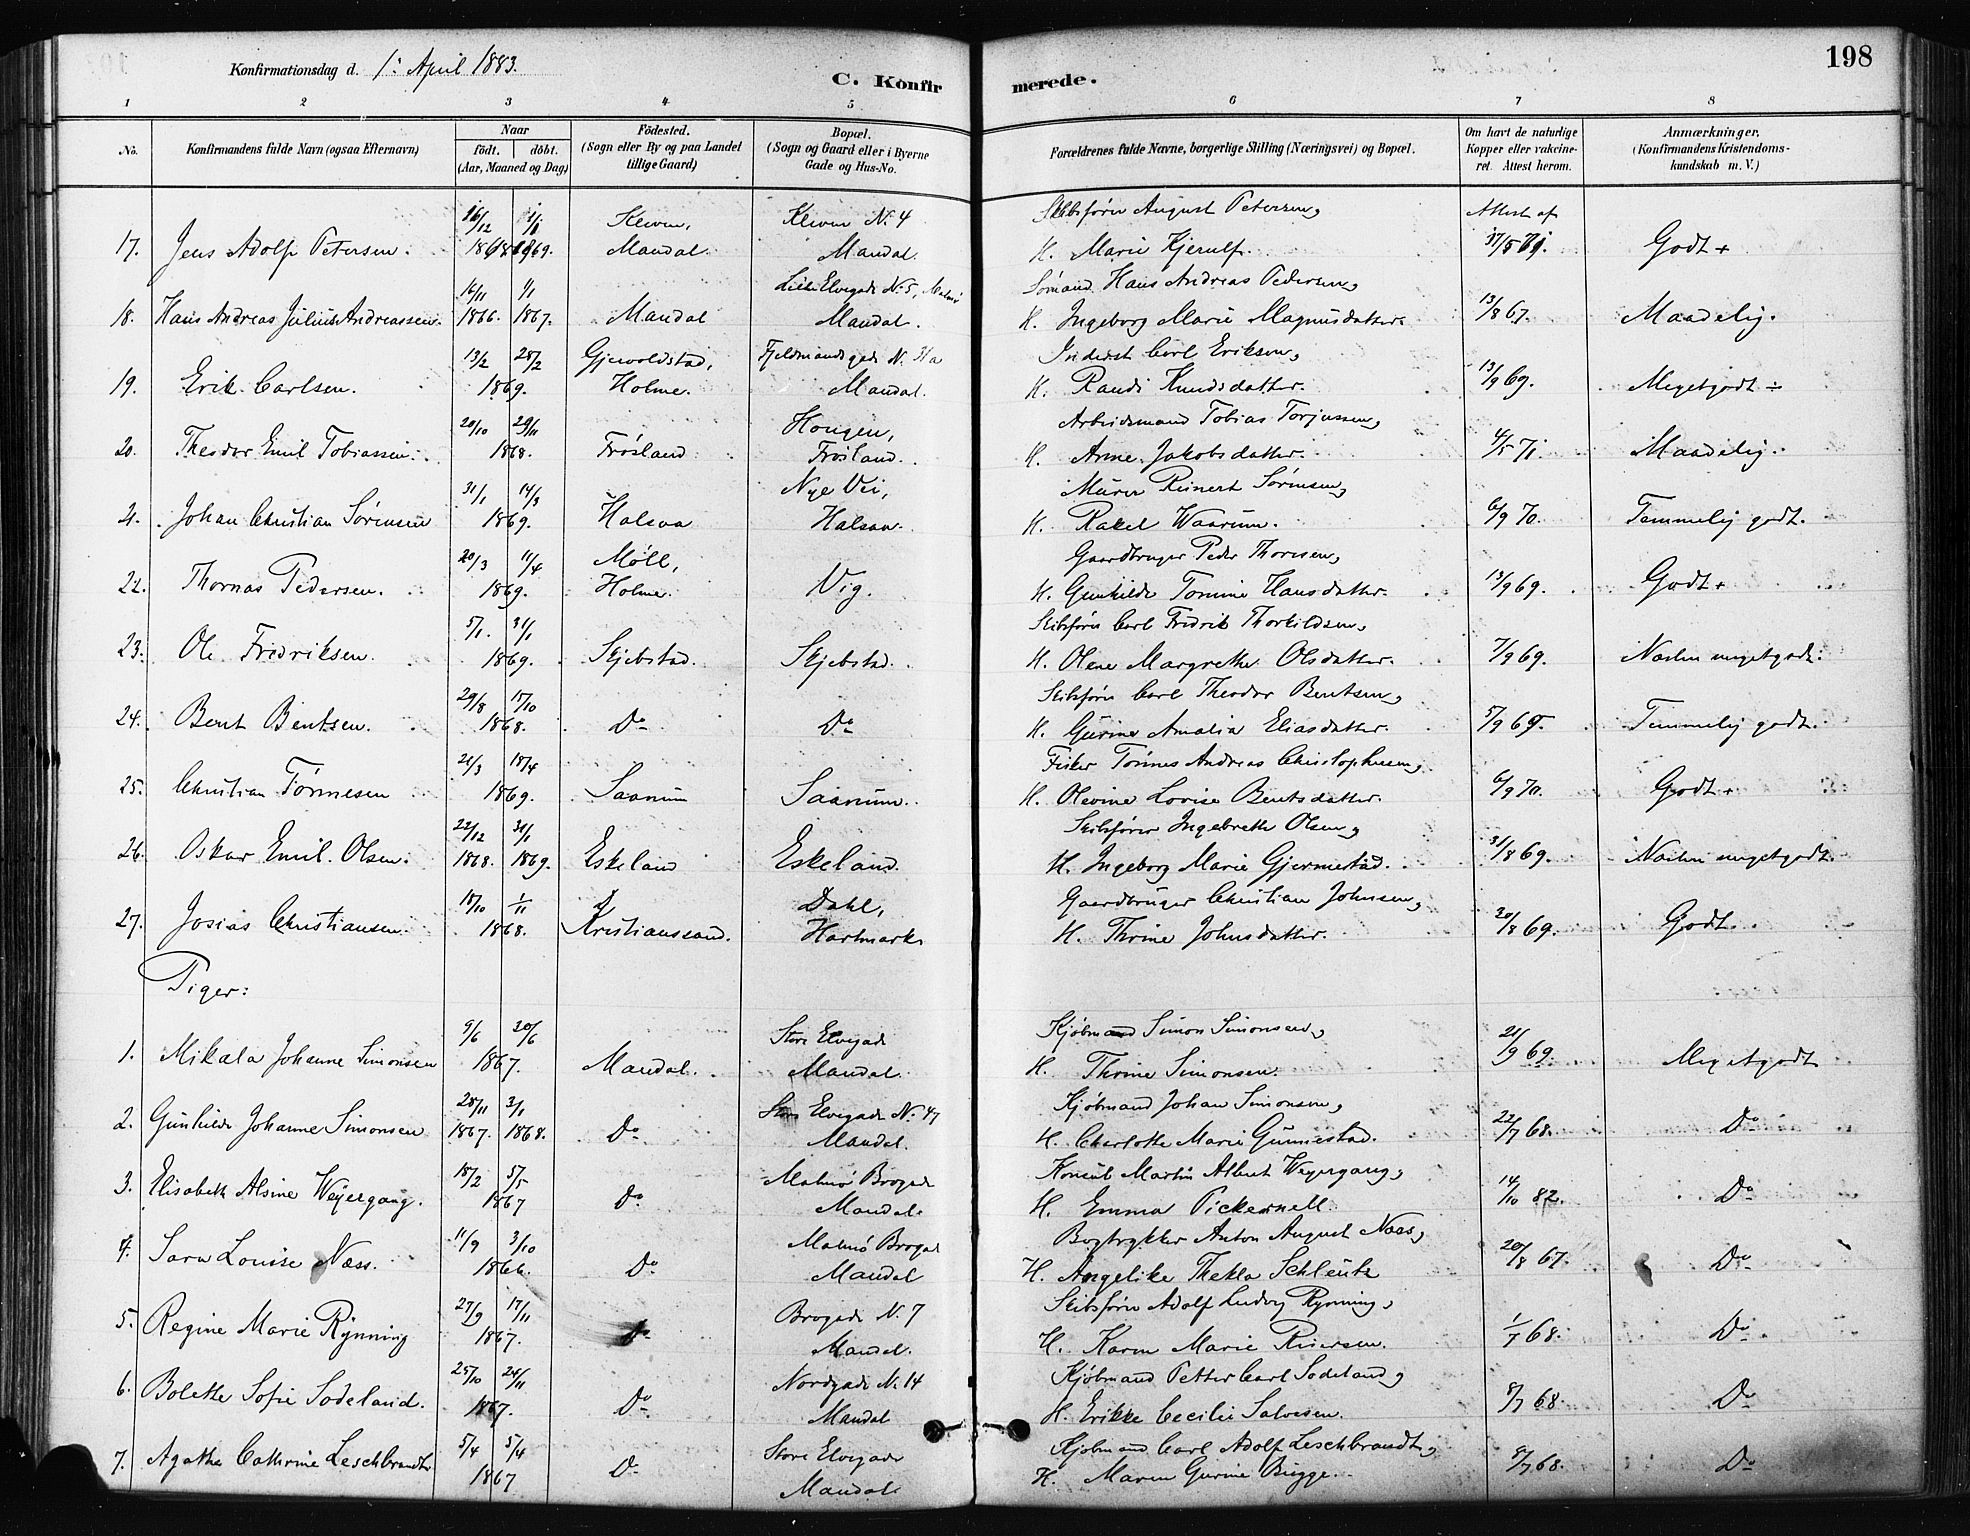 Konfirmationsdag d. 1: April 1883.
C. Konfir
merede.
198
1 2 3 4 5 6 7 8
No. Konfirmandens fulde Navn (ogsaa Efternavn) Naar født. døbt. (Aar, Maaned og Dag) Födested. (Sogn eller By og paa Landet tillige Gaard) Bopæl. (Sogn og Gaard eller i Byerne Gade og Hus-No. Forældrenes fulde Navne, borgerlige Stilling (Næringsvei) og Bopæl. Om havt de naturlige Kopper eller vakcineret. Attest herom. Anmærkninger. (Konfirmandens Kristendomskundskab m. V.)
16/12 Kleven, Kleven N. 4 Skibsfører August Petersen, Attest af
17. Jens Adolf Petersen. 1869. Mandal. Mandal. H. Marie Kjerulf. Godt +
1/1 Lille Elvegade N. 5, Malmø Sømand Hans Andreas Pedersen,
18. Hans Andreas Julius Andreassen. 1866. 1867. Mandal Mandal. H. Ingeborg Marie Magnusdatter. 13/8 67. Maadelig.
13/2 28/2 Gjervoldstad, Fjeldmandsgade N. 31a Inderst Carl Eriksen,
19. Erik Carlsen. 1869. Holme. Mandal. H. Randi Knudsdatter. 13/9 69. Megetgodt ÷
20/10 29/11 Hougen, Arbeidsmand Tobias Torjussen,
20. Theodor Emil Tobiassen. 1868. Frøsland Frøsland. H. Anne Jakobsdatter. 4/5 71. Maadelig.
31/1 14/3 Nye Vei, Murer Reinert Sørensen,
21. Johan Christian Sørensen 1869. Halsaa Halsaa. H. Rakel Waarum. 6/9 70. Temmelig godt.
20/3 11/4 Møll, Gaardbruger Peder Thoresen,
22. Thomas Pedersen. 1869. Holme. Vig. H. Gunhilde Tomine Hansdatter. 13/9 69. Godt +
5/1. 31/1 Skibsfører Carl Fredrik Thorkildsen,
23. Ole Fredriksen. 1869. Skjebstad. Skjebstad. H. Olene Margrethe Olsdatter. 7/9 69. Næsten megetgodt.
29/8 15/10 Skibsfører Carl Theodor Bentsen,
24. Bernt Bentsen. 1868. Do Do H. Gurine Amalia Eliasdatter. 5/9 69. Temmelig godt.
21/3 18/4 Fisker Tønnes Andreas Christophersen,
25. Christian Tønnesen 1869. Saanum Saanum. H. Olevine Lovise Bentsdatter. 6/9 70. Godt +
22/12 31/1 Skibsfører Ingebreth Olsen,
26. Oskar Emil Olsen. 1868. 1869. Eskeland Eskeland. H. Ingeborg Marie Gjermestad. 31/8 69. Næsten megetgodt.
18/10 1/11 Dahl, Gaardbruger Christian Johnsen,
27. Josias Christiansen. 1868. Kristianssand. Hartmark H. Thrine Johnsdatter. 30/8 69. Godt.
Piger:
9/6 20/6 Store Elvegade Kjøbmand Simon Simonsen,
1. Mikala Johanne Simonsen 1867. Mandal. Mandal. H. Thrine Simonsen. 21/9 69. Megetgodt
28/11 3/1 Store Elvegade N. 47 Kjøbmand Johan Simonsen,
2. Gunhilde Johanne Simonsen 1867. 1868. Do Mandal. H. Charlotte Marie Gunnestad. 22/7 68. Do
18/2 5/5 Malmø Brogade Konsul Martin Albert Weyergang,
3. Elisabeth Alsine Weyergang. 1867 Do Mandal. H. Emma Pickernell. 14/10 82. Do
11/9 3/10 Malmø Brogade Bogtrykker Anton August Næss,
4. Sara Louise Næss. 1866. Do Mandal H. Angelike Thekla Schleutz 20/8 67. Do
27/9 17/11 Brogade N. 7 Skibsfører Adolf Ludvig Rynning,
5. Regine Marie Rynning 1867. Do Mandal. H. Karen Marie Reiersen. 1/7 68. Do
25/10 24/11 Nordgade N. 14 Kjøbmand Petter Carl Sodeland,
6. Bolette Sofie Sodeland. 1867. Do Mandal H. Erikke Cecilie Salvesen. 8/7 68. Do
5/4 5/4 Store Elvegade Kjøbmand Carl Adolf Leschbrandt,
7. Agathe Cathrine Leschbrandt. 1867 Do Mandal. H. Maren Gurine Bugge. 8/7 68. Do